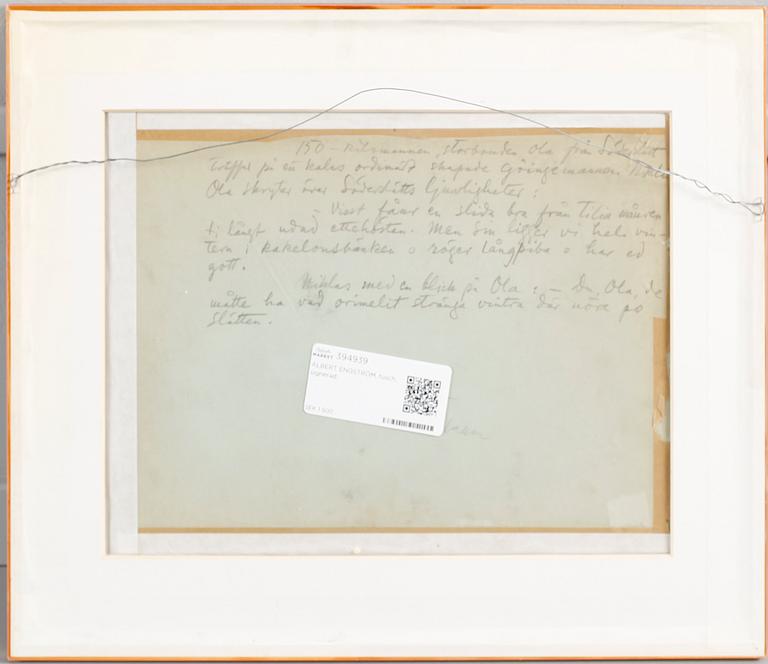 150-kilosmannen, storbonden Ola från Söderslätt
träffar på en kalas ordinärt skapade Göingemannen
Ola skryter över Söderslätts ljuvligheter:
- Visst fånr en slida bra från Tilia månren
t; långt udad ettehösten. Men sin ligger vi hela vin-
tern i kakelonsbänken o röger långpiba o har ed
gott.
Niklas med en blick på Ola: - Du, Ola, de
måtte ha vad orimelit stränga vintra där nöre po
slätten.
MARKET 394939
ALBERT ENGSTRÖM, tusch,
signerad.
SEK 1 500